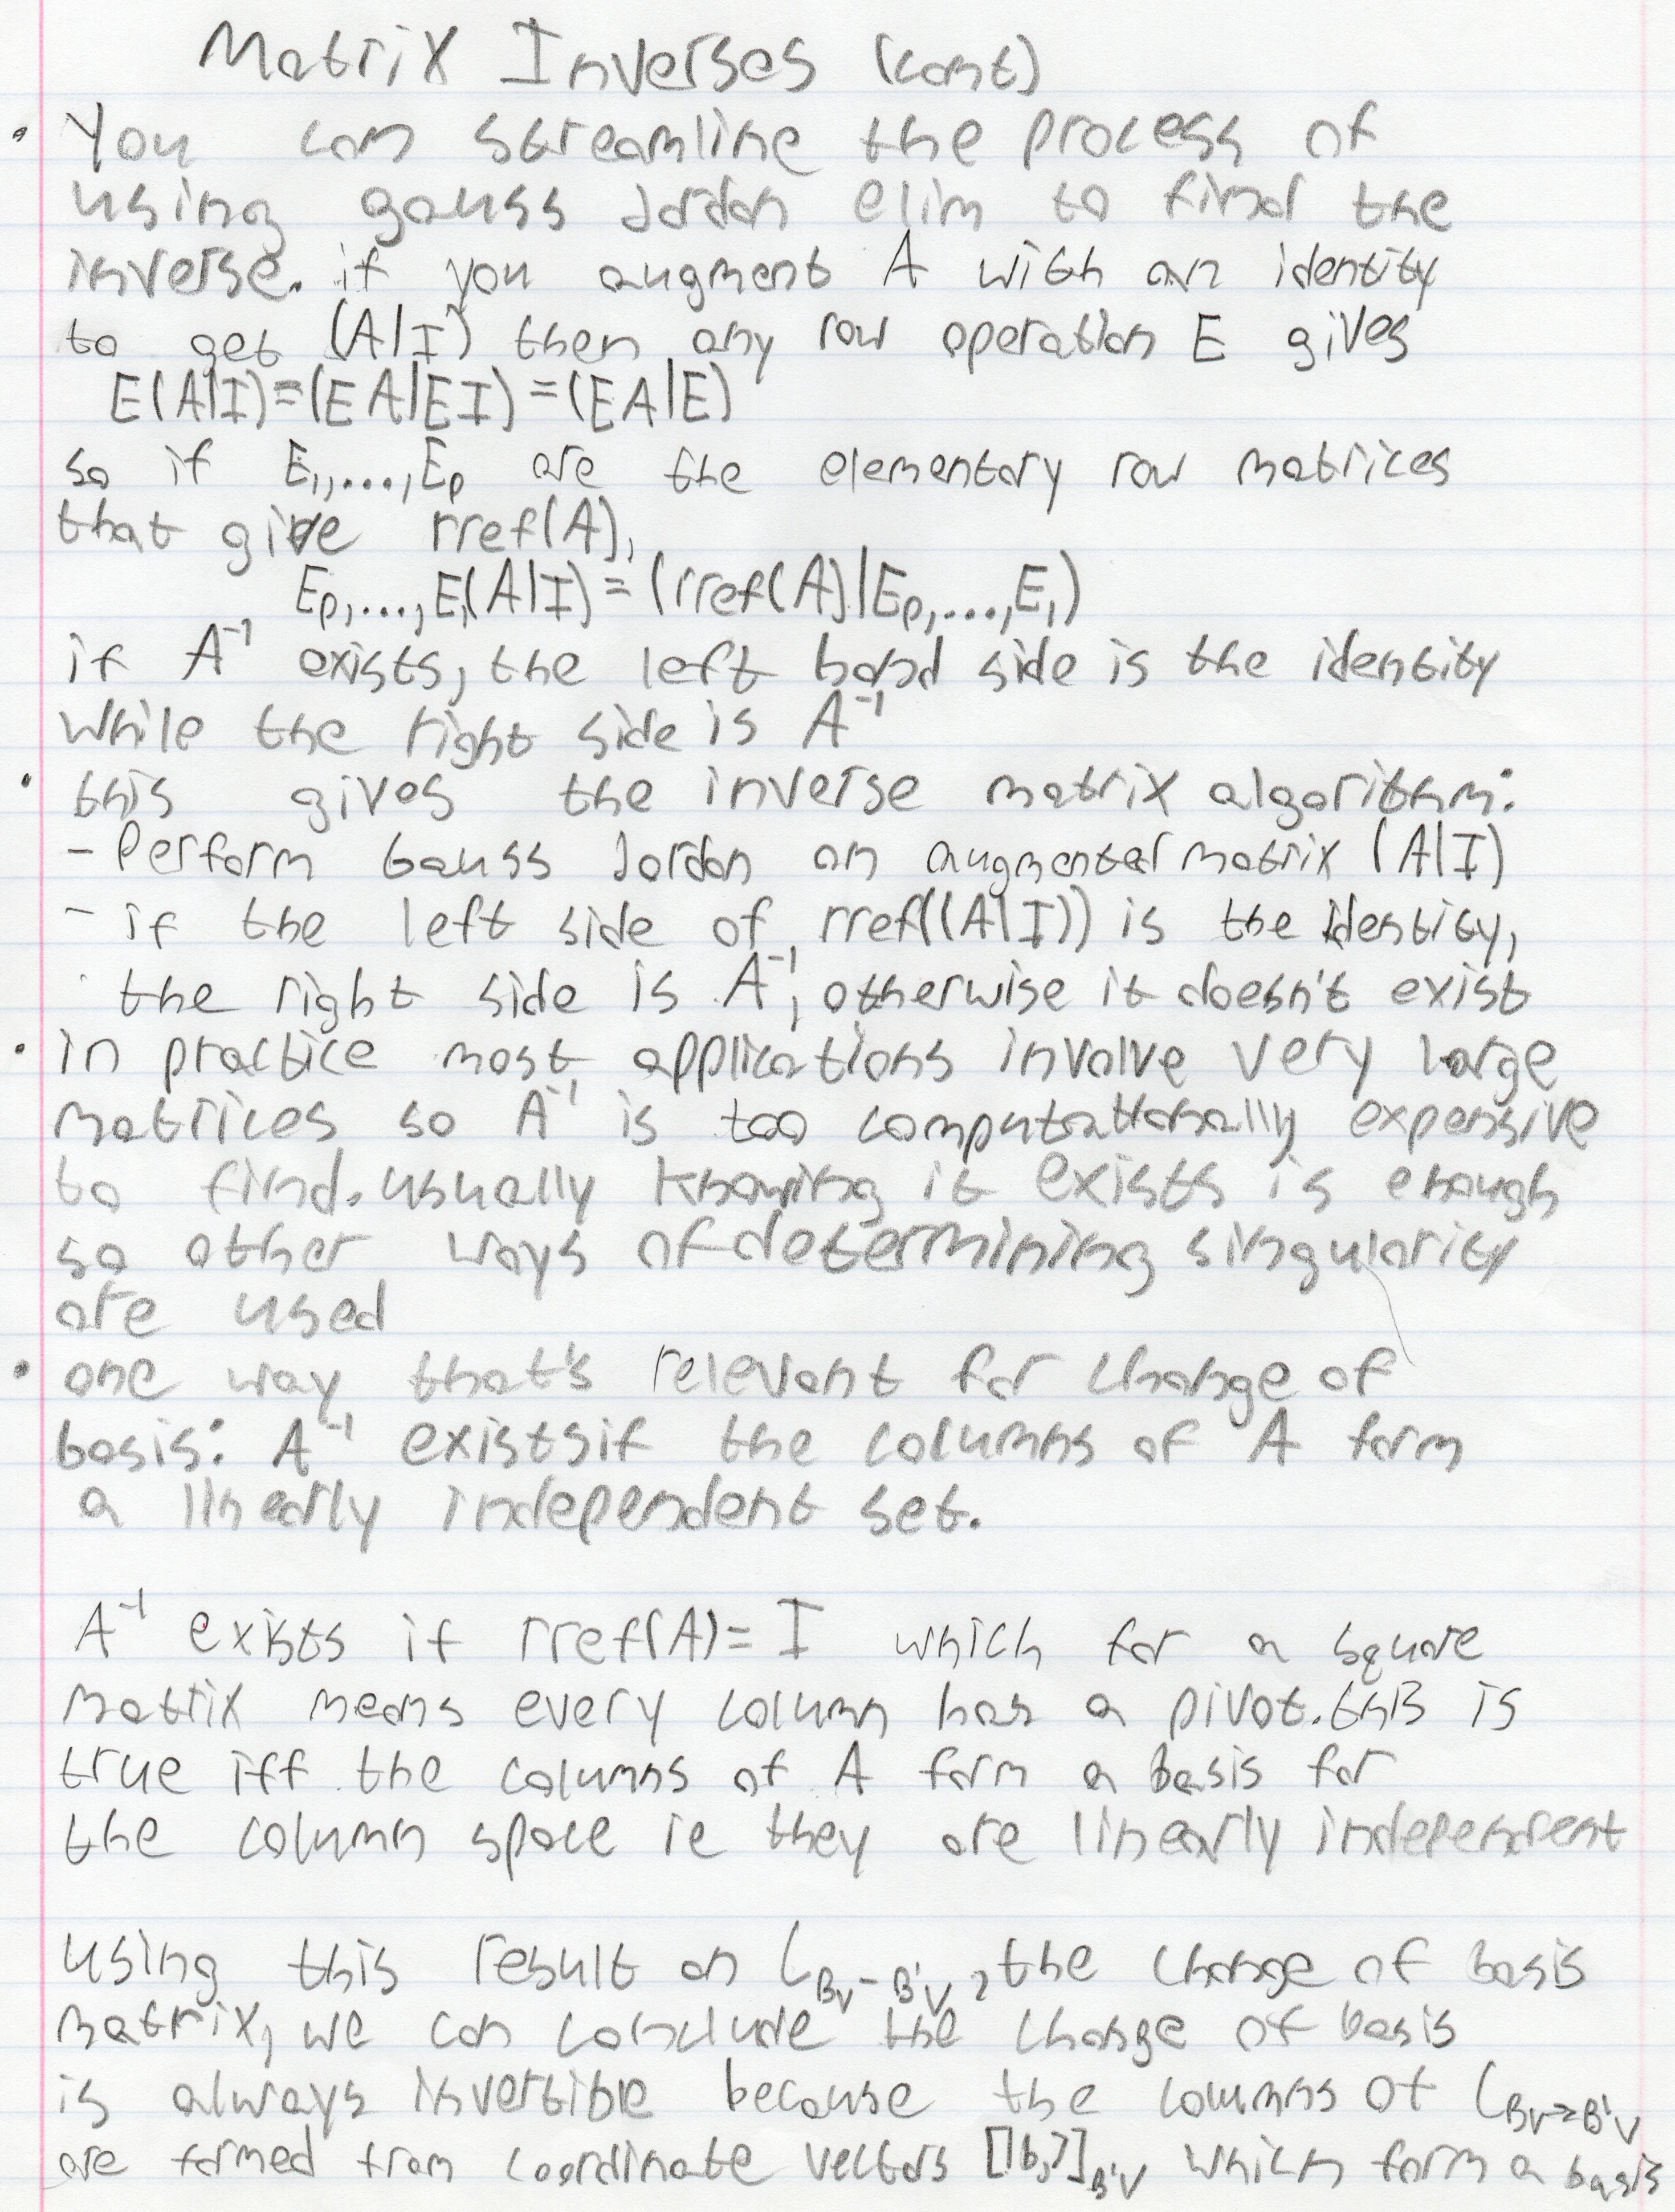 Matrix Inverses (cont)
• You can streamline the process of
using gauss Jordan elim to find the
inverse. if you augment A with an identity
to get (A|I) then any row operation E gives
E(A|I)=(EA|EI)=(EA|E)
so if E₁,...,Eₚ are the elementary row matrices
that give rref(A),
Eₚ,...,E₁(A|I)=(rref(A)|Eₚ,...,E₁)
if A⁻¹ exists, the left hand side is the identity
while the right side is A⁻¹
• this gives the inverse matrix algorithm:
- Perform Gauss Jordan on augmented matrix (A|I)
- if the left side of rref((A|I)) is the identity,
the right side is A⁻¹, otherwise it doesn't exist
• in practice most applications involve very large
matrices so A⁻¹ is too computationally expensive
to find. usually knowing it exists is enough
so other ways of determining singularity
are used
• one way that's relevant for change of
basis: A⁻¹ exists if the columns of A form
a linearly independent set.
A⁻¹ exists if rref(A)= I which for a square
matrix means every column has a pivot. this is
true iff the columns of A form a basis for
the column space ie they are linearly independent
using this result on C_Bv-B'v, the change of basis
matrix, we can conclude the change of basis
is always invertible because the columns of C_Bv→B'v
are formed from coordinate vectors [|bⱼ⟩]_B'v which form a basis